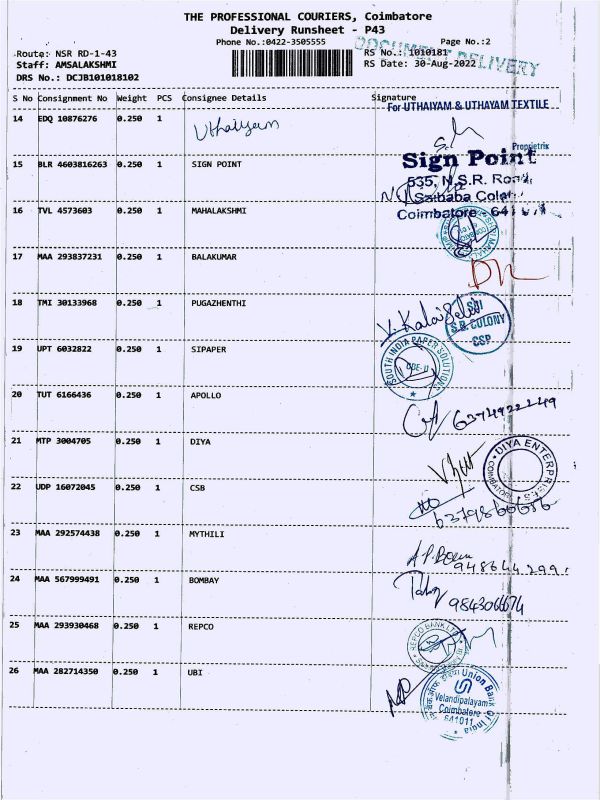 THE PROFESSIONAL COURIERS, Coimbatore
Delivery Runsheet - P43
Phone No.:0422-3505555
Page No.:2
DOCUMENT DELIVERY
Route: NSR RD-1-43
RS No.: 1010181
Staff: AMSALAKSHMI
RS Date: 30-Aug-2022
DRS No.: DCJB101018102
S No Consignment No Weight PCS Consignee Details Signature
For UTHAIYAM & UTHAYAM TEXTILE
14 EDQ 10876276 0.250 1 Uthaiyam
Proprietrix
Sign Point
15 BLR 4603816263 0.250 1 SIGN POINT
535, N.S.R. Road
Saibaba Colony
Coimbatore 641
16 TVL 4573603 0.250 1 MAHALAKSHMI
17 MAA 293837231 0.250 1 BALAKUMAR
18 TMI 30133968 0.250 1 PUGAZHENTHI
V. Kalaiselvi
SBI
S.B. COLONY
CSP
19 UPT 6032822 0.250 1 SIPAPER
SOUTH INDIA PAPER SOLUTIONS
CBE-11
20 TUT 6166436 0.250 1 APOLLO
6374922249
21 MTP 3004705 0.250 1 DIYA
DIYA ENTERPRISES
COIMBATORE
22 UDP 16072045 0.250 1 CSB
23 MAA 292574438 0.250 1 MYTHILI
24 MAA 567999491 0.250 1 BOMBAY
9843066674
25 MAA 293930468 0.250 1 REPCO
REPCO BANK LTD
26 MAA 282714350 0.250 1 UBI
Union Bank Of India
Velandipalayam
Coimbatore
641011